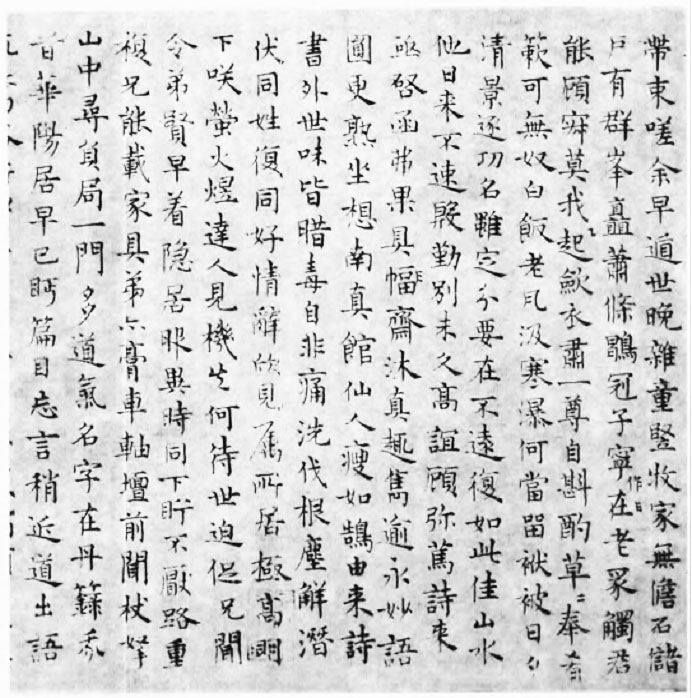 帶束嗟余早遁世晚雜童豎牧家無儋石諸
戶有群峯矗蕭條鶡冠子寧在老聚觸君
能顧寂莫我起斂衣肅一尊自斟酌草〻奉肴
蔌可無奴白飯老瓦汲寒瀑何當留襆被日夕
清景逐功名雖定分要在不遠復如此佳山水
他日来不速慇勤別未久高誼顧弥篤詩来
亟啓函果具幅齋沐真趣雋逾永妙語
圓更熟坐想南真館仙人瘦如鵠由来詩
書外世味皆腊毒自非痛洗伐根塵解潛
伏同姓復同好情辭欣見属所居極高明
下咲螢火煜達人見機先何待世迫促兄聞
令弟賢早着隐居服異時同下不厭路重
複兄能載家具弟亦膏車軸壇前聞杖拏
山中尋負局一門多道氣名字在丹籙我
昔華陽居早已眄篇目忘言稍近道出語